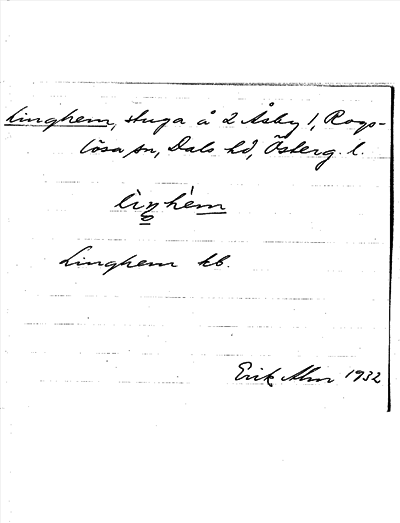 Linghem, stuga å 2 Åsby 1, Rogs-
lösa sn, Dals hd, Österg. l.
lìŋhèm
Linghem kb.
Erik Alm 1932